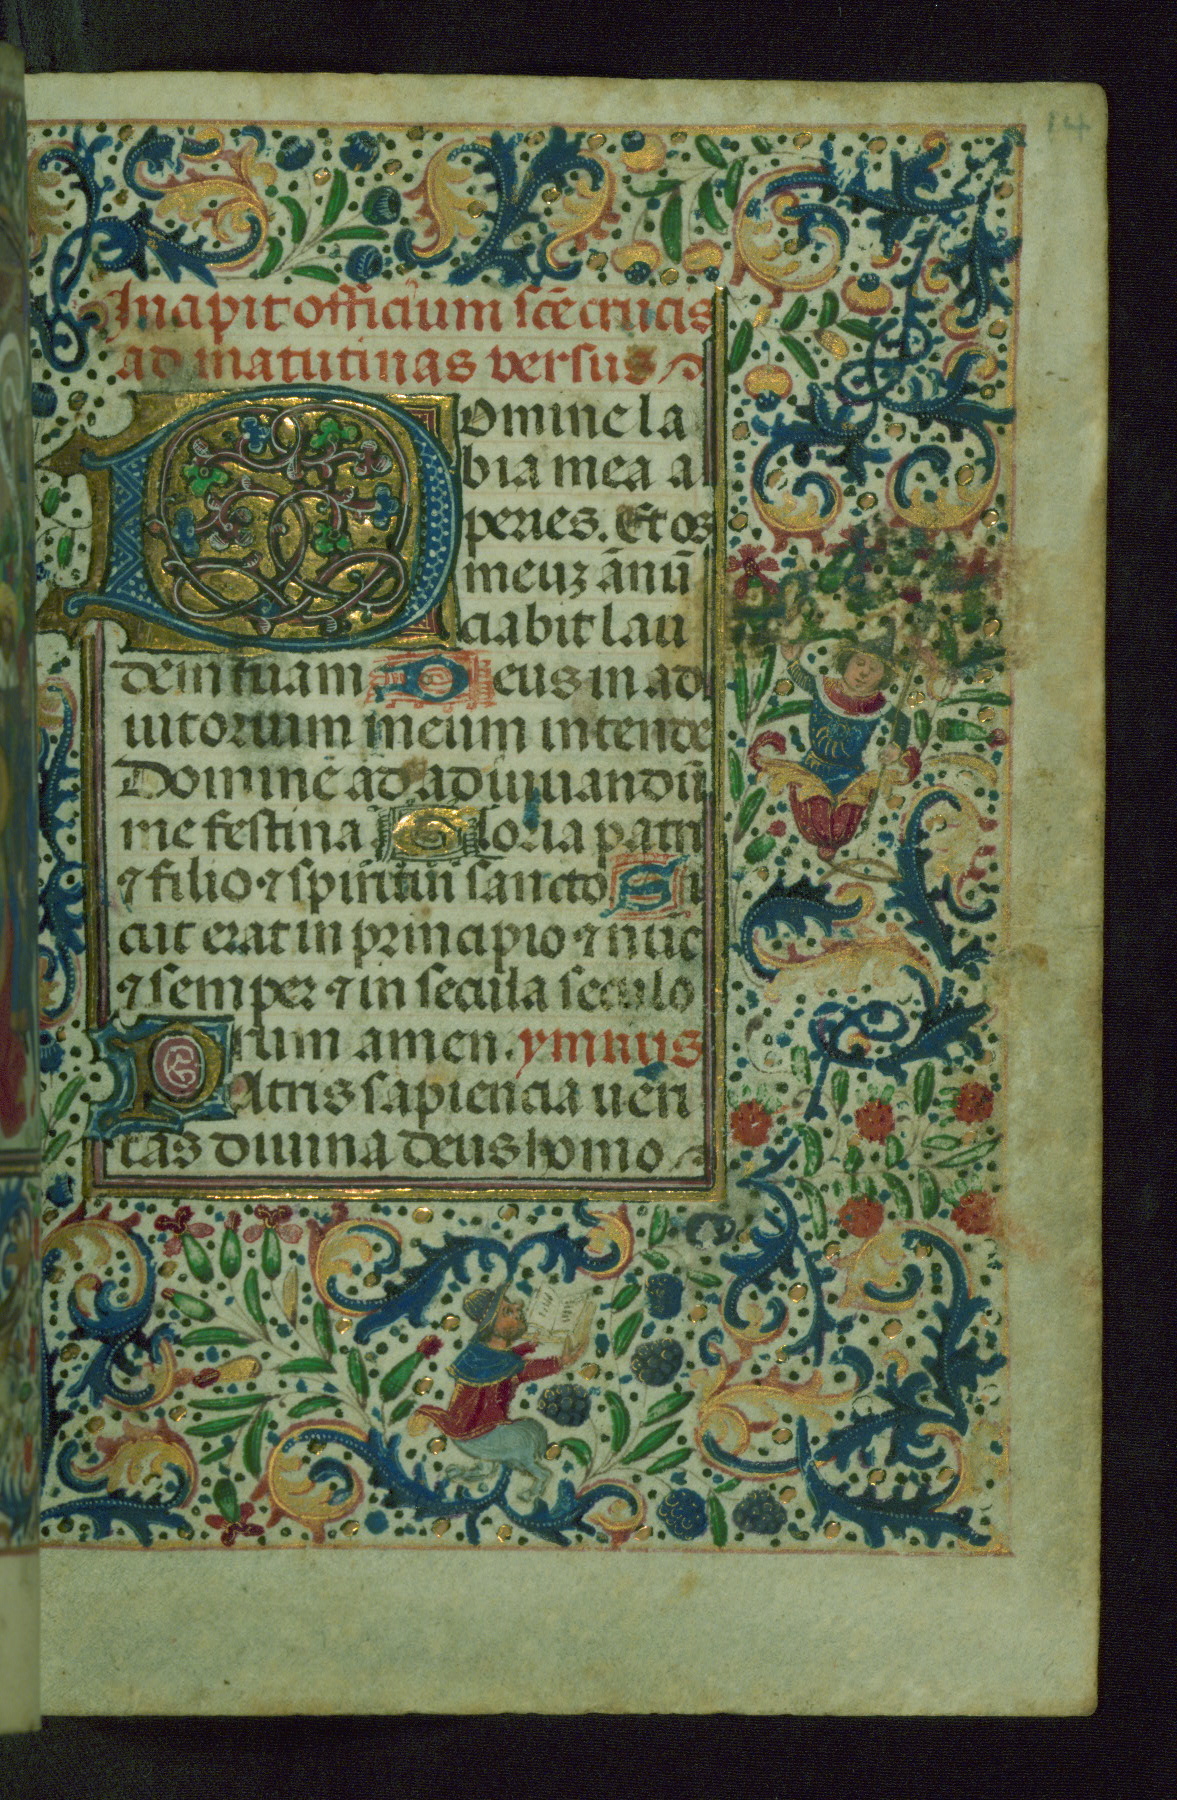 14
Incipit officium scē crucis
ad matutinas versus
Domine la
bia mea a
peries. Et os
meuz ānnū
ciabit lau
dem tuam Deus in ad
iutorium meum intende
Dominē ad adiuuandū
me festina Gloria patri
⁊ filio ⁊ spiritui sancto Si
cut erat in principio ⁊ nūc
⁊ semper ⁊ in secula seculo
rum amen. ymnus
PAtris sapiencia ueri
tas diuina deus homo